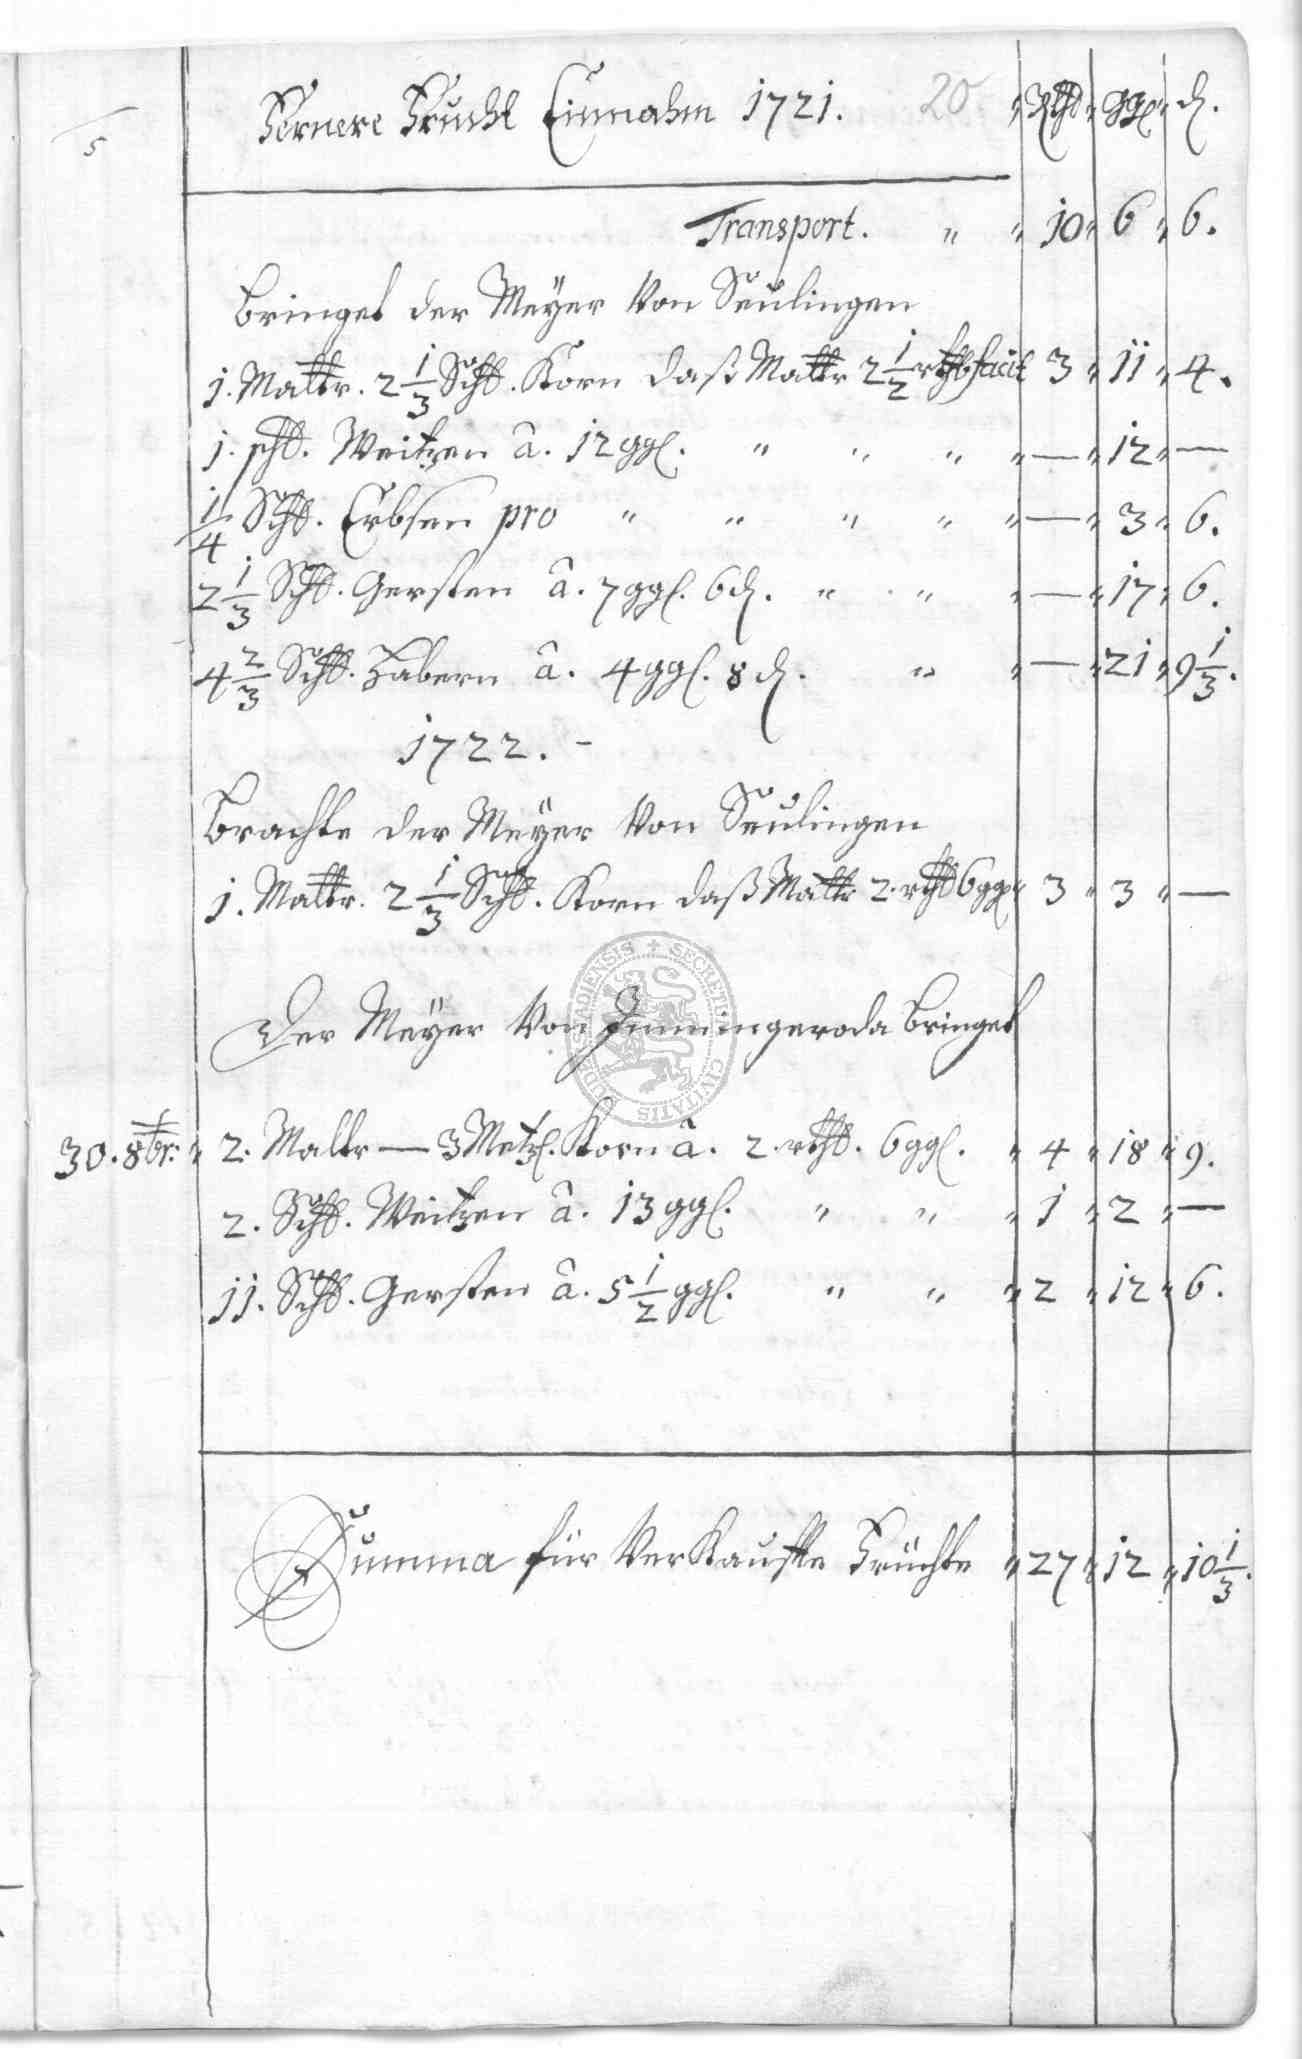 Fernere Frucht Einnahm 1721. 20 " Rthl " ggl " d.
5
Transport. " " 10 " 6 " 6.
bringet der Meÿer Von Seulingen
1. Maltr. 2 1/3 Schl. Korn daß Maltr 2 1/2 rthl facit 3 " 11 " 4.
1. schl. Weitzen â. 12 ggl. " " " " — " 12 " —
1/4 Schl. Erbsen pro " " " " " — " 3 " 6.
2 1/3 Schl. Gersten â. 7 ggl. 6 d. " " " — " 17 " 6.
4 2/3 Schl. Habern â. 4 ggl. 8 d. " " — " 21 " 9 1/3.
1722. -
Brachte der Meÿer Von Seulingen
1. Maltr. 2 1/3 Schl. Korn daß Maltr 2. rthl 6 ggl 3 " 3 " —
Der Meÿer Von Immingeroda bringet
30. 8br. " 2. Maltr — 3 Metz. Korn â. 2. rthl. 6 ggl. " 4 " 18 " 9.
2. Schl. Weitzen â. 13 ggl. " " " 1 " 2 " —
11. Schl. Gersten â. 5 1/2 ggl. " " " 2 " 12 " 6.
Summa für Verkaufte Früchte " 27 " 12 " 10 1/3.
SECRETUM CIVITATIS DUDERSTADIENSIS